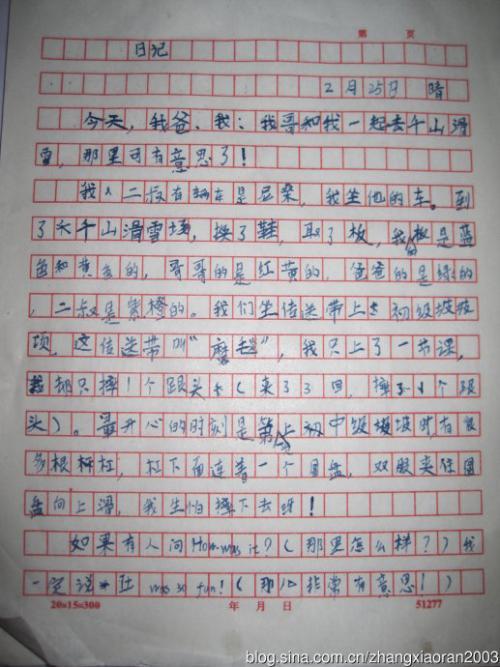 第 页
日记
2月25日 晴
今天,我爸、我:我哥和我一起去千山滑
雪,那里可有意思了!
我二叔有辆车是尼桑,我坐他的车。到
了大千山滑雪场,换了鞋,取了板,我的板是蓝
色和黄色的,哥哥的是红黄的,爸爸的是绿的
,二叔是紫橙的。我们坐传送带上去初级坡坡
顶,这传送带叫“魔毯”,我只上了一节课,
都只摔1个跟头(来了3回,摔了个跟
头)。最开心的时刻是第上初中级坡时有很
多根杆杠,杠下面连着一个圆盘,双腿夹住圆
盘向上滑,我生怕摔下去呀!
如果有人问How was it?(那里怎么样?)我
一定说It was so fun!(那儿非常有意思!)
20×15=300 年 月 日 51277
blog.sina.com.cn/zhangxiaoran2003